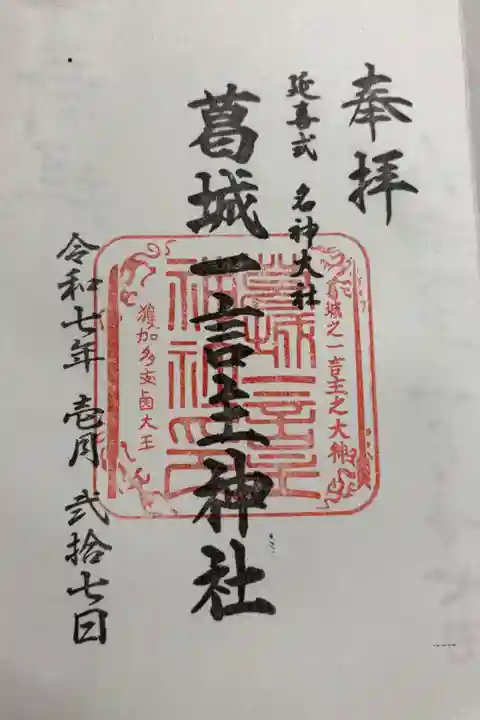 奉拝
延喜式 名神大社
葛城一言主神社
令和七年 壱月 弐拾七日
葛城之一言主之大神
葛城一言主神社印
獲加多支鹵大王